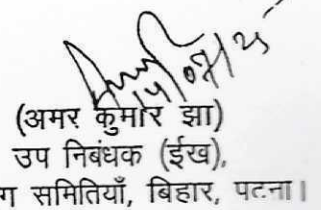 (अमर कुमार झा)
उप निबंधक (ईख),
ग समितियाँ, बिहार, पटना।